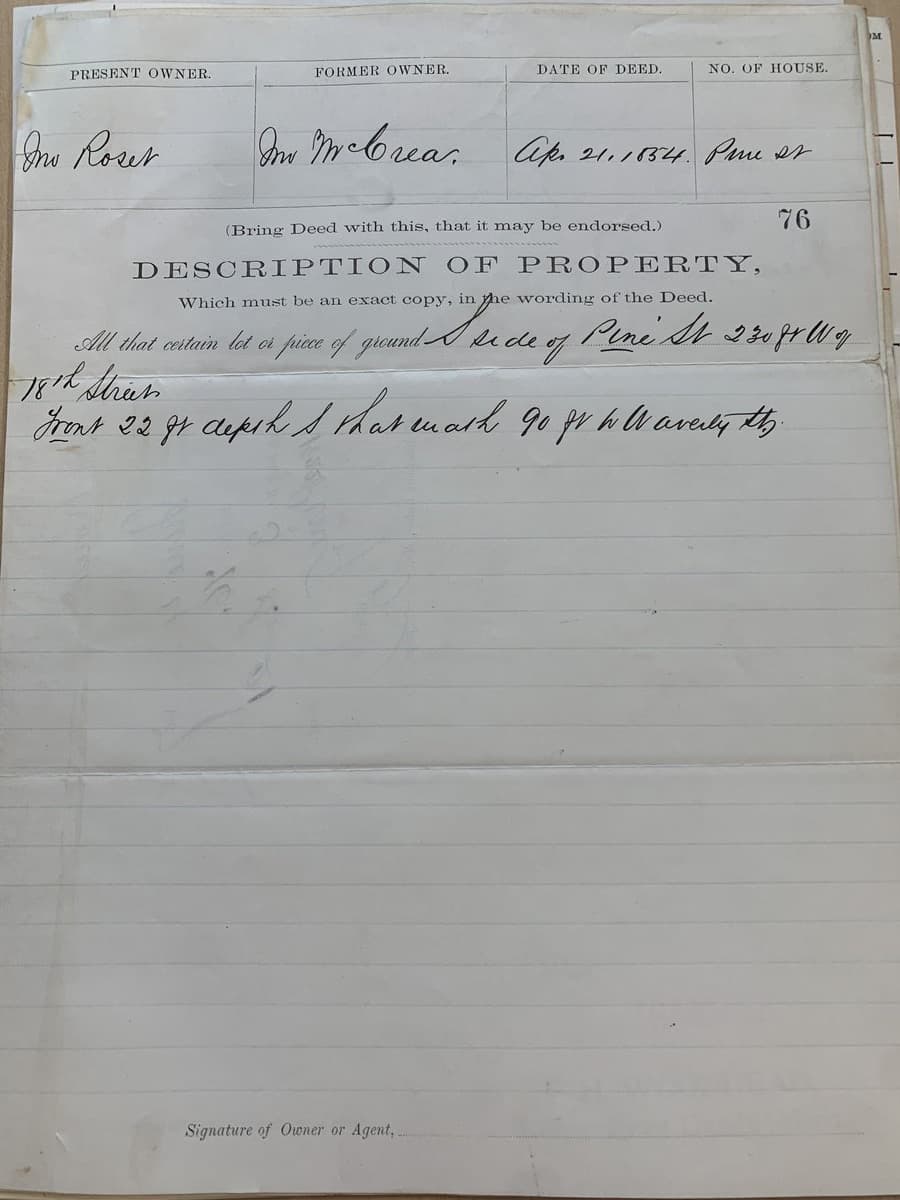 OM
PRESENT OWNER. FORMER OWNER. DATE OF DEED. NO. OF HOUSE.
Jno Roset Jno McCrea. Apr. 21. 1854. Pine St
76
(Bring Deed with this, that it may be endorsed.)
DESCRIPTION OF PROPERTY,
Which must be an exact copy, in the wording of the Deed.
All that certain lot or piece of ground S side of Pine St 230 ft W of
18th Street
Front 22 ft depth S that width 90 ft to Waverly St
Signature of Owner or Agent,